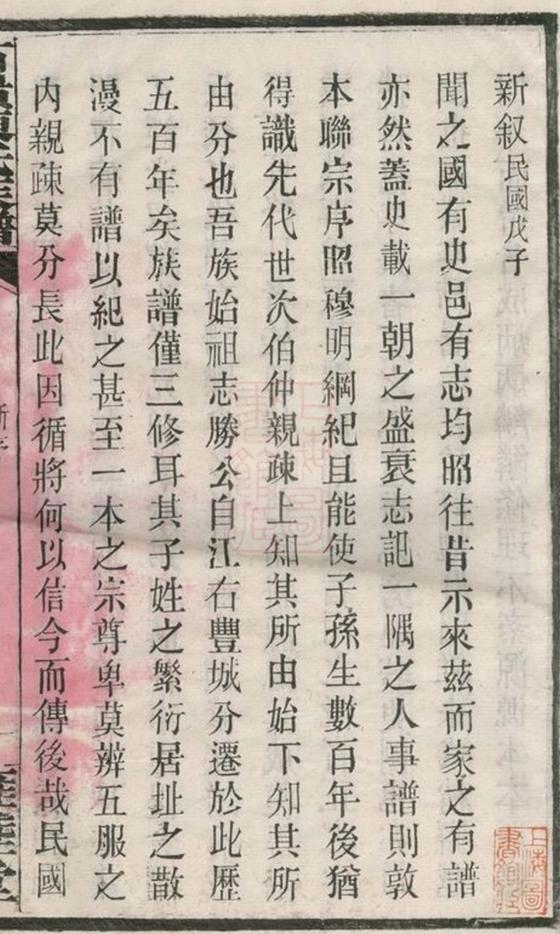 新叙民國戊子
聞之國有史邑有志均昭往昔示來茲而家之有譜
亦然蓋史載一朝之盛衰志記一隅之人事譜則敦
本聯宗序昭穆明綱紀且能使子孫生數百年後猶
得識先代世次伯仲親疎上知其所由始下知其所
由分也吾族始祖志勝公自江右豐城分遷於此歷
五百年矣族譜僅三修耳其子姓之繁衍居址之散
漫不有譜以紀之甚至一本之宗尊卑莫辨五服之
內親疎莫分長此因循將何以信今而傳後哉民國
上海圖書館藏